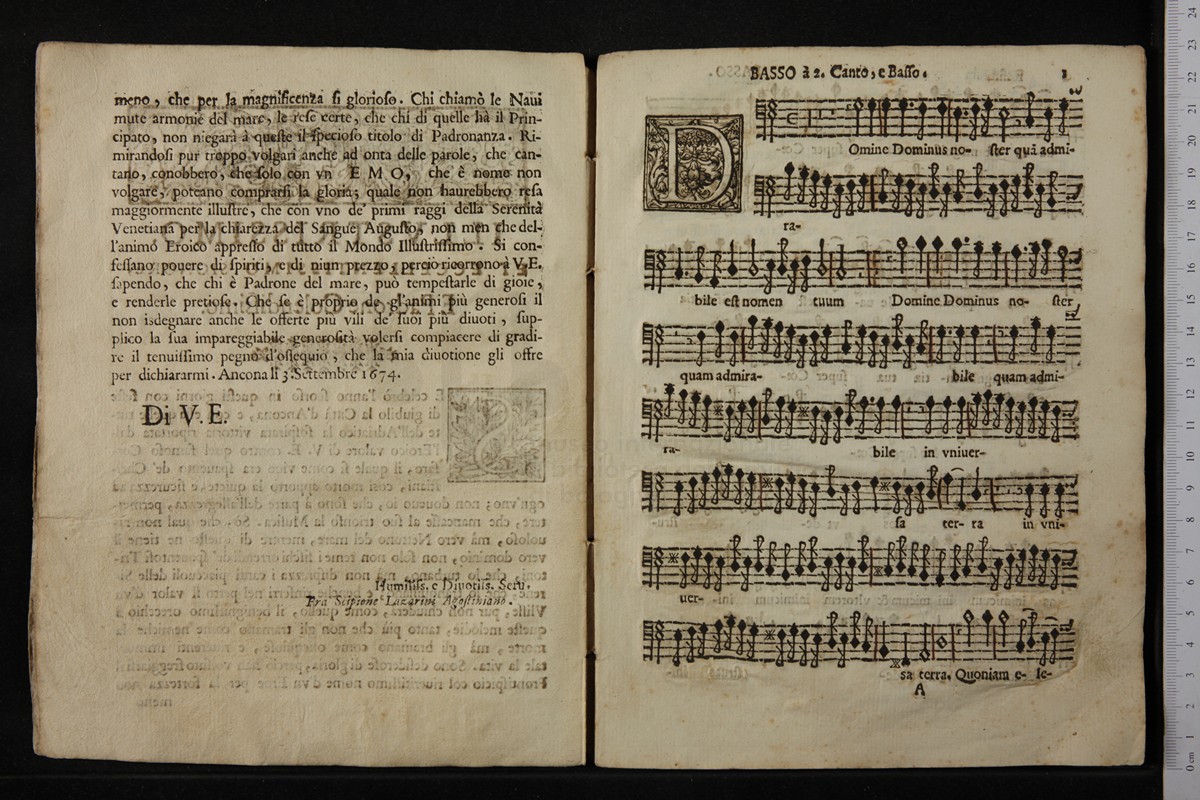 meno, che per la magnificenza sì glorioso. Chi chiamò le Naui
mute armonie del mare, le rese certe, che chi di quelle hà il Prin-
cipato, non niegarà à queste il specioso titolo di Padronanza. Ri-
mirandosi pur troppo volgari anche ad onta delle parole, che can-
tano, conobbero, che solo con vn EMO, che è nome non
volgare, poteano comprarsi la gloria; quale non haurebbero resa
maggiormente illustre, che con vno de' primi raggi della Serenità
Venetiana per la chiarezza del Sangue Augusto, non men che del-
l'animo Eroico appresso di tutto il Mondo Illustrissimo. Si con-
fessano pouere di spiriti, e di niun prezzo, perciò ricorrono à V.E.
sapendo, che chi è Padrone del mare, può tempestarle di gioie,
e renderle pretiose. Che se è proprio de gl'animi più generosi il
non isdegnare anche le offerte più vili de' suoi più diuoti, sup-
plico la sua impareggiabile generosità volersi compiacere di gradi-
re il tenuissimo pegno d'ossequio, che la mia diuotione gli offre
per dichiararmi. Ancona li 3. Settembre 1674.
Di V. E.
Humiliss. e Diuotiss. Seru.
Fra Scipione Lazarini Agostiniano.
BASSO à 2. Canto, e Basso. 1
DOmine Dominus no- ster quã admi-
ra-
bile est nomen tuum Domine Dominus no- ster
quam admira- bile quam admi-
ra- bile in vniuer-
sa ter- ra in vni-
uer-
sa terra. Quoniam e- le-
A